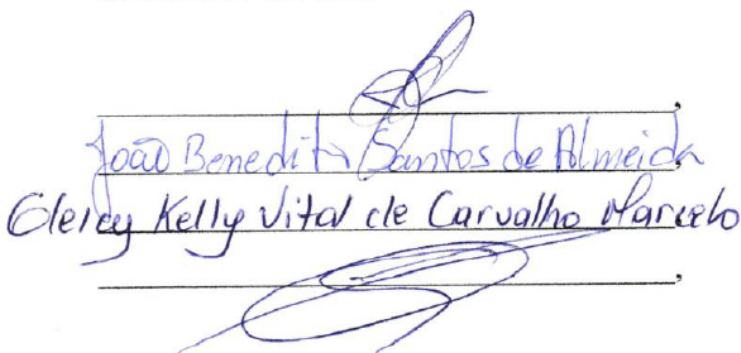 João Benedito Santos de Almeida
Gleicy Kelly Vital de Carvalho Marcelo